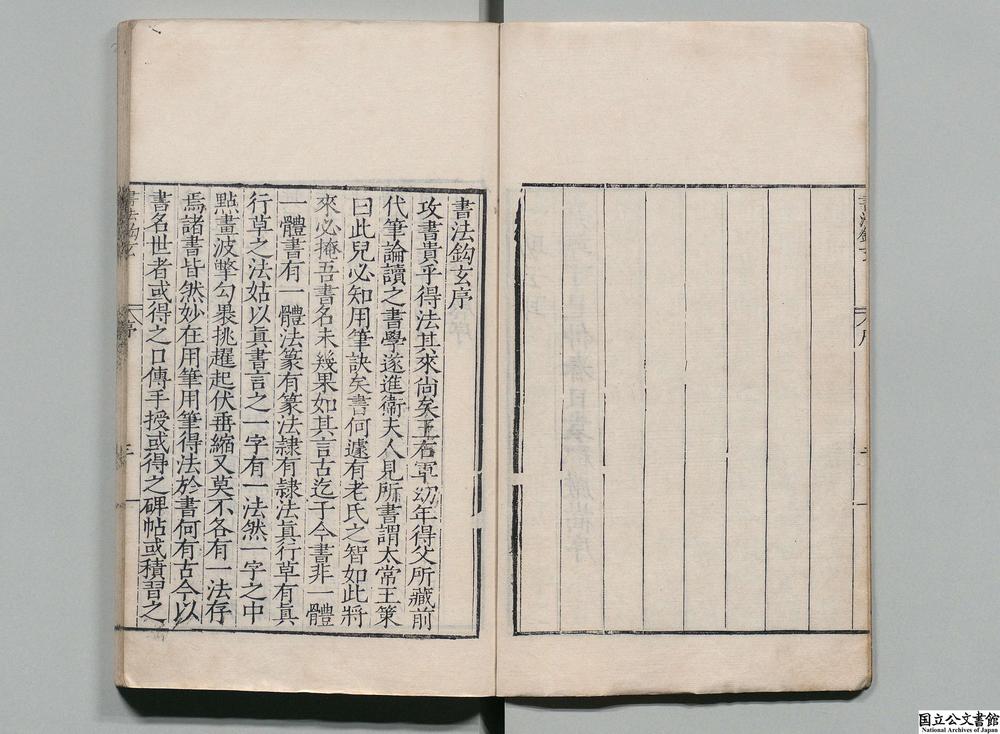 書法鈎玄序
攻書貴乎得法其來尚矣王右軍幼年得父所藏前
代筆論讀之書學遂進衛夫人見所書謂太常王策
曰此兒必知用筆訣矣書何遽有老氏之智如此將
來必掩吾書名未幾果如其言古迄于今書非一體
一體書有一體法篆有篆法隸有隸法真行草有真
行草之法姑以真書言之一字有一法然一字之中
點畫波撆勾裹挑趯起伏垂縮又莫不各有一法存
焉諸書皆然妙在用筆用筆得法於書何有古今以
書名世者或得之口傳手授或得之碑帖或積習之
国立公文書館
National Archives of Japan